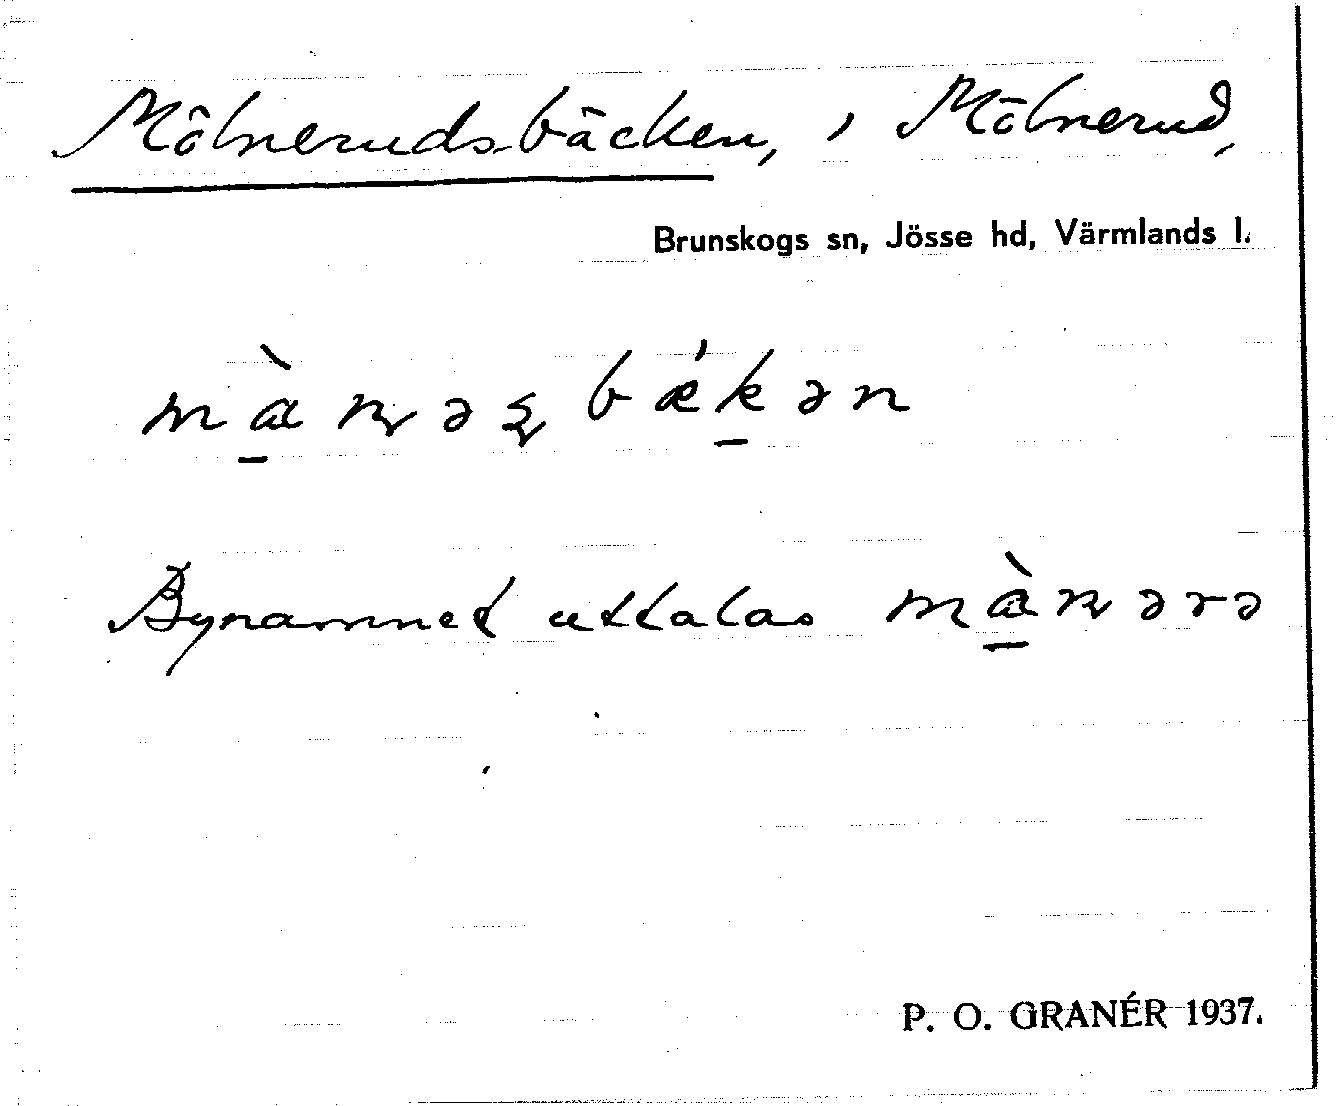 Mölnerudsbäcken, i Mölnerud,
Brunskogs sn, Jösse hd, Värmlands l.
mɑ̱̀ɳəʂbǽḵən
Bynamnet uttalas mɑ̱̀ɳərə
P. O. GRANÉR 1937.